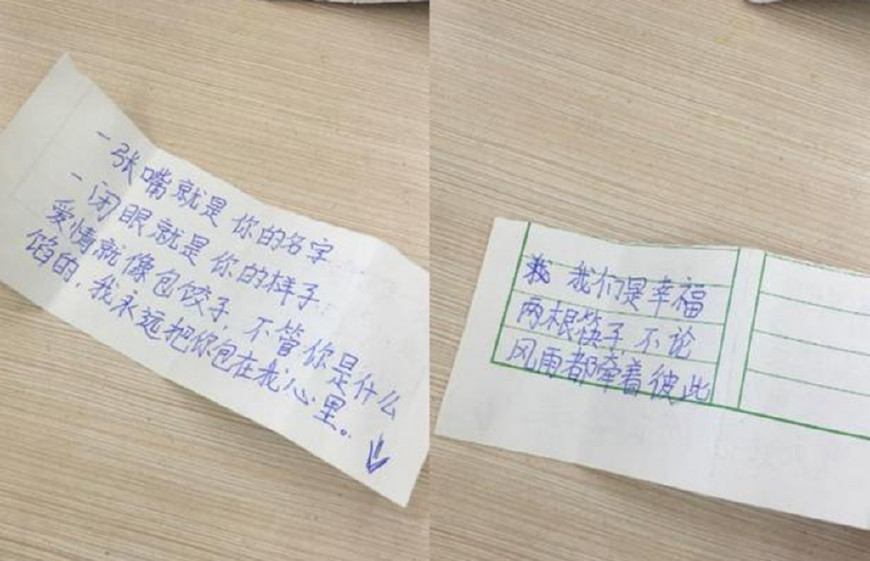 一张嘴就是你的名字
一闭眼就是你的样子
爱情就像包饺子，不管你是什么
馅的，我永远把你包在我心里。
我们是幸福
两根筷子不论
风雨都牵着彼此